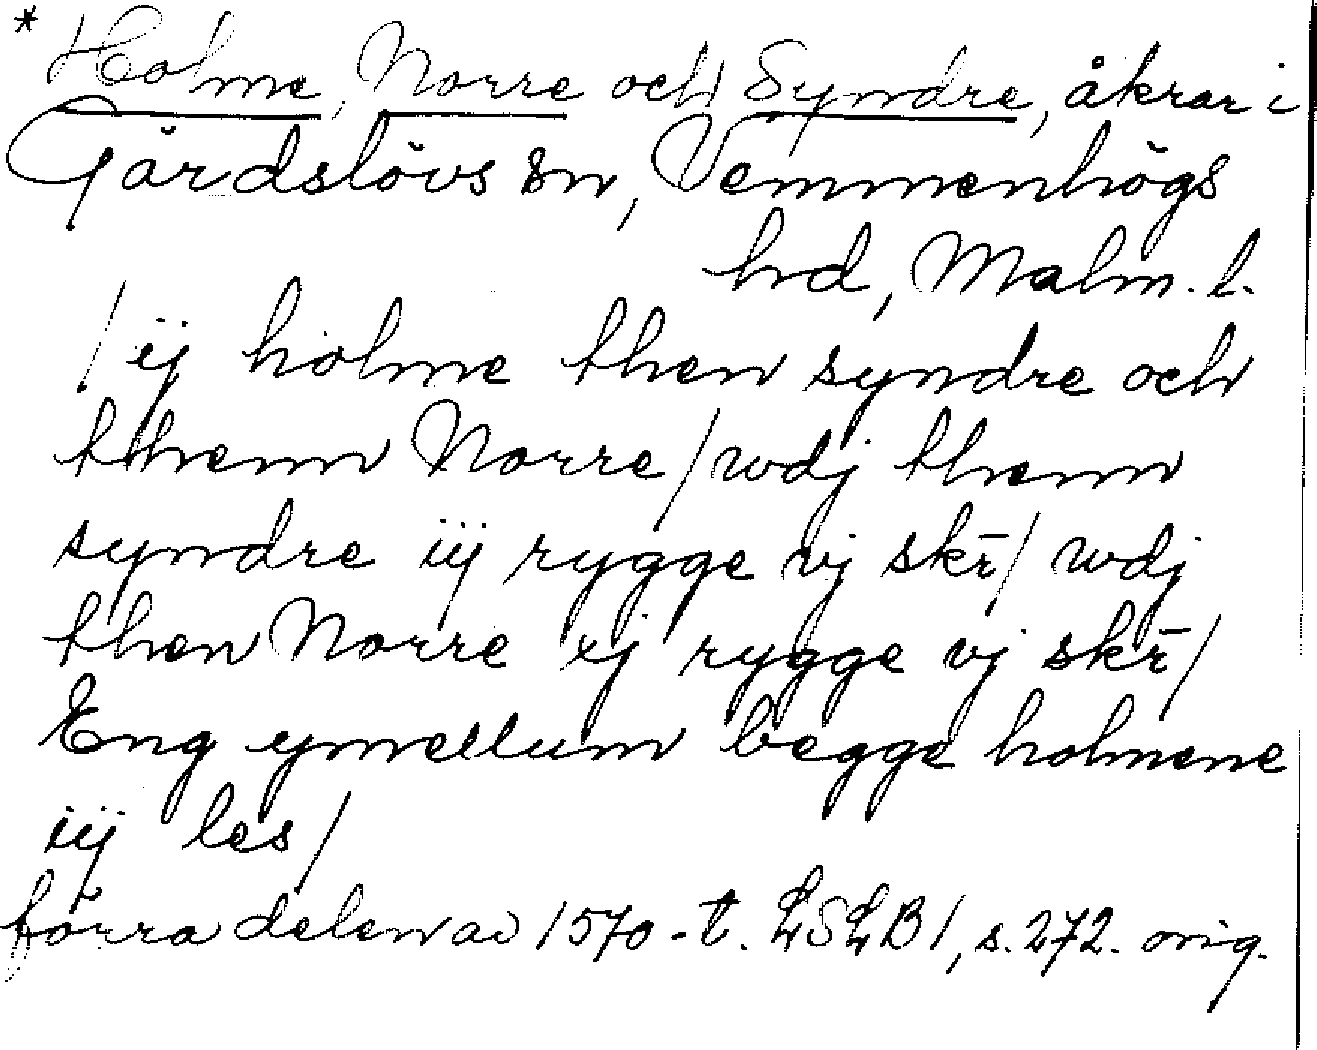 * Holme, Norre och Syndre, åkrar i
Gärdslövs sn, Vemmenhögs
hd, Malm. l.
/ ij holme then syndre och
thenn Norre / wdj thenn
syndre iij rygge vj skr̄ / wdj
then Norre xj rygge vj skr̄ /
Eng ymellum begge holmene
iij les /
förra delen av 1570-t. LSLB 1, s. 272. orig.